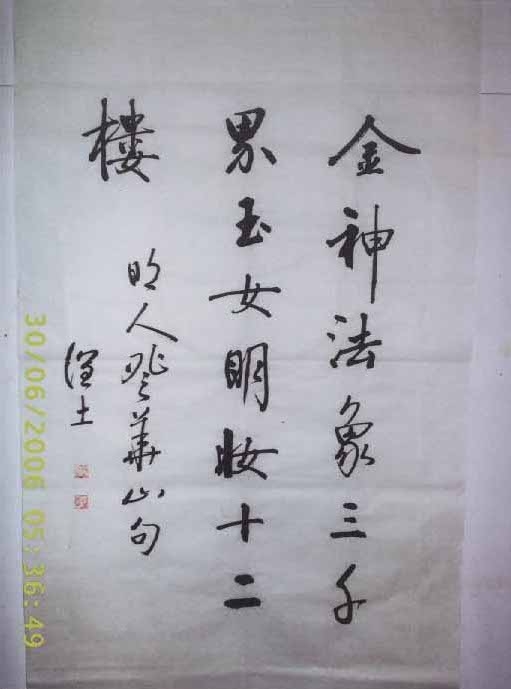 金神法象三千
界玉女明妆十二
樓
明人登華山句
30/06/2006 05:36:49